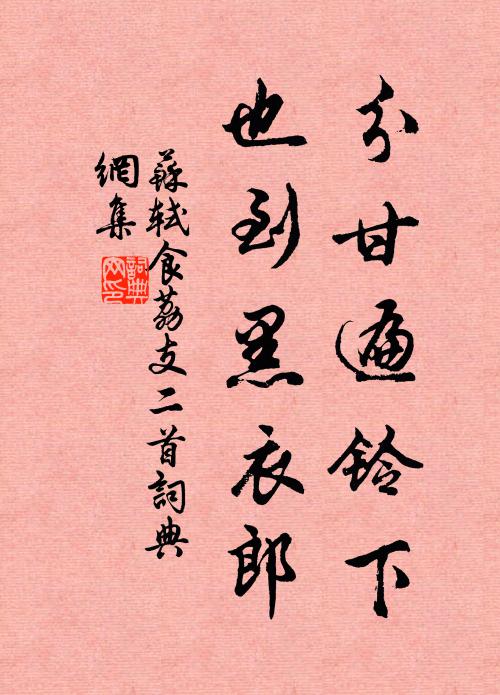 分甘遍鈴下
也到黑衣郎
蘇軾食荔支二首詞典
網集
詞典
网印